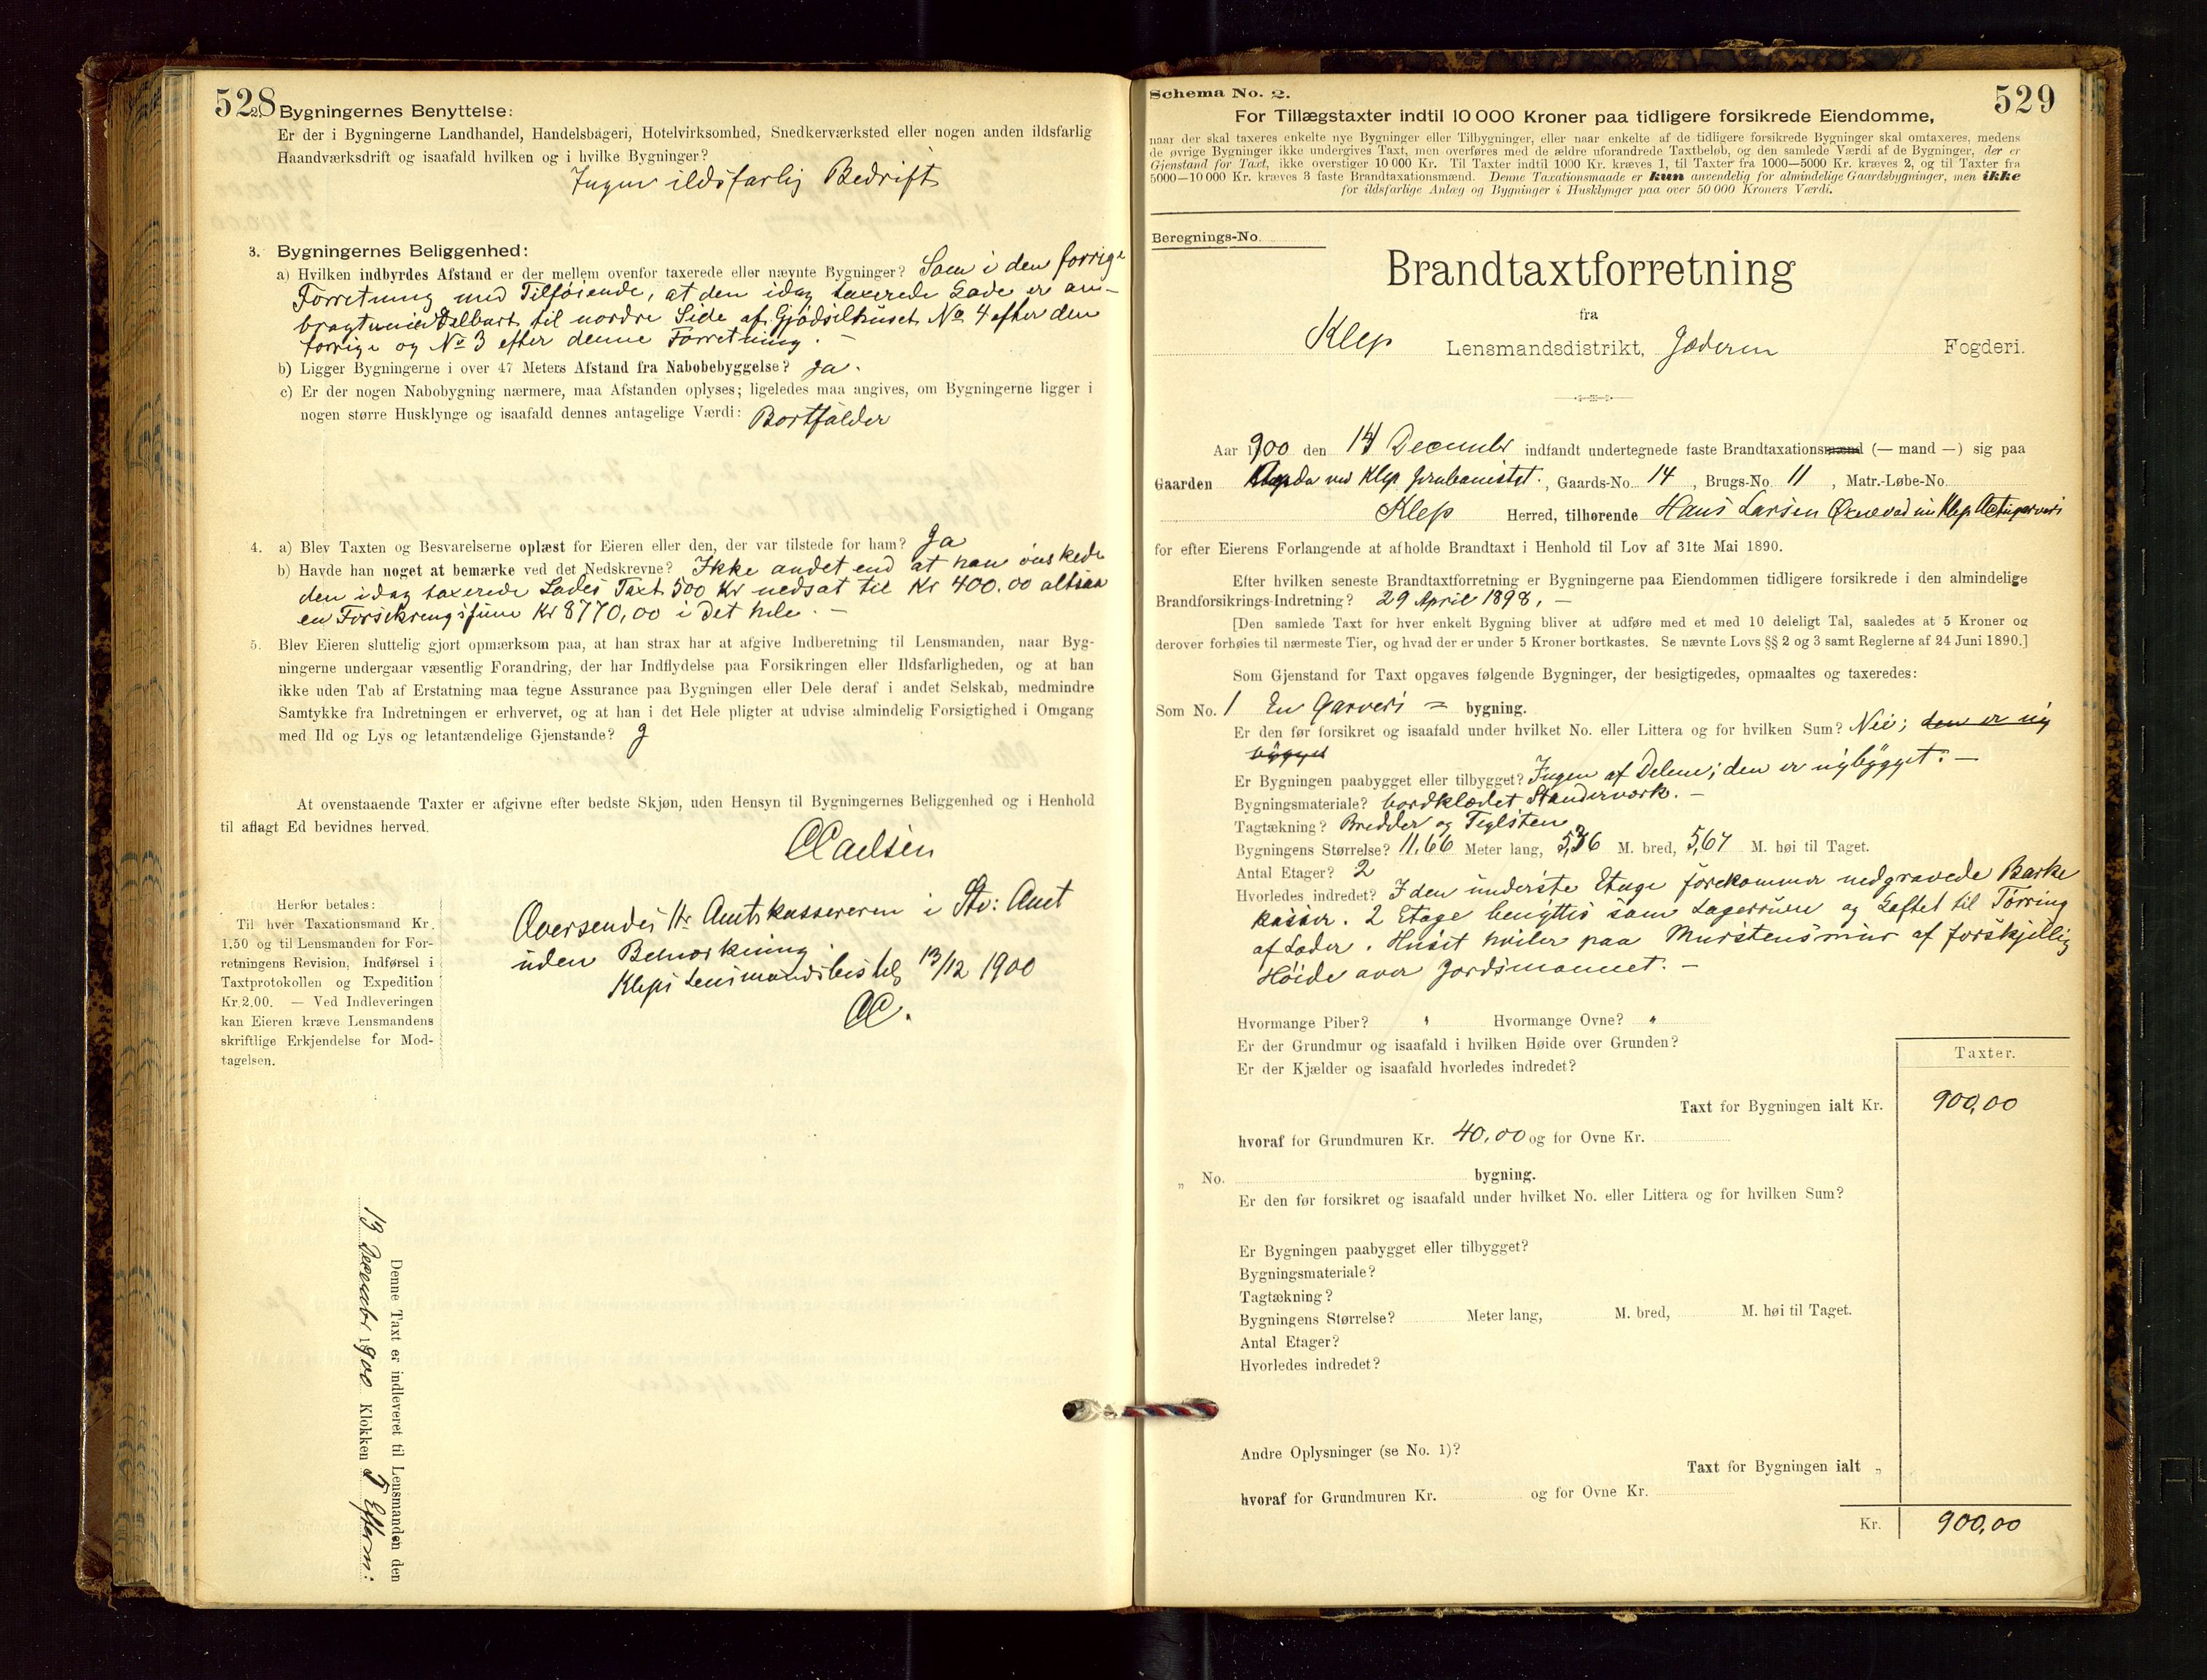 528
2. Bygningernes Benyttelse:
Er der i Bygningerne Landhandel, Handelsbageri, Hotelvirksomhed, Snedkerværksted eller nogen anden ildsfarlig
Haandværksdrift og isaafald hvilken og i hvilke Bygninger?
Ingen ildsfarlig Bedrift
3. Bygningernes Beliggenhed:
a) Hvilken indbyrdes Afstand er der mellem ovenfor taxerede eller nævnte Bygninger? Som i den forrige
Forretning med Tilføiende, at den idag taxerede Lade er an-
bragt umiddelbart til nordre Side af Gjødselhuset No 4 efter den
forrige og No 3 efter denne Forretning. –
b) Ligger Bygningerne i over 47 Meters Afstand fra Nabobebyggelse? Ja.
c) Er der nogen Nabobygning nærmere, maa Afstanden oplyses; ligeledes maa angives, om Bygningerne ligger i
nogen større Husklynge og isaafald dennes antagelige Værdi: Bortfalder
4. a) Blev Taxten og Besvarelserne oplæst for Eieren eller den, der var tilstede for ham? Ja
b) Havde han noget at bemærke ved det Nedskrevne? Ikke andet end at han ønskede
den idag taxerede Lades Taxt 500 Kr nedsat til Kr 400.00 altsaa
en Forsikringssum Kr 8770,00 i det hele. –
5. Blev Eieren sluttelig gjort opmærksom paa, at han strax har at afgive Indberetning til Lensmanden, naar Byg-
ningerne undergaar væsentlig Forandring, der har Indflydelse paa Forsikringen eller Ildsfarligheden, og at han
ikke uden Tab af Erstatning maa tegne Assurance paa Bygningen eller Dele deraf i andet Selskab, medmindre
Samtykke fra Indretningen er erhvervet, og at han i det Hele pligter at udvise almindelig Forsigtighed i Omgang
med Ild og Lys og letantændelige Gjenstande?
At ovenstaaende Taxter er afgivne efter bedste Skjøn, uden Hensyn til Bygningernes Beliggenhed og i Henhold
til aflagt Ed bevidnes herved.
Herfor betales:
Til hver Taxationsmand Kr.
1.50 og til Lensmanden for For-
retningens Revision, Indførsel i
Taxtprotokollen og Expedition
Kr. 2.00. — Ved Indleveringen
kan Eieren kræve Lensmandens
skriftlige Erkjendelse for Mod-
tagelsen.
Oversendes Hr Amtskassereren i Stv: Amt
uden Bemærkning
Kleps Lensmandsbestil 13/12 1900
Denne Taxt er indleveret til Lensmanden den
13 December 1900 Klokken 5 Efterm:
Schema No. 2.
529
For Tillægstaxter indtil 10 000 Kroner paa tidligere forsikrede Eiendomme,
naar der skal taxeres enkelte nye Bygninger eller Tilbygninger, eller naar enkelte af de tidligere forsikrede Bygninger skal omtaxeres, medens
de øvrige Bygninger ikke undergives Taxt, men overføres med de ældre uforandrede Taxtbeløb, og den samlede Værdi af de Bygninger, der er
Gjenstand for Taxt, ikke overstiger 10 000 Kr. Til Taxter indtil 1000 Kr. kræves 1, til Taxter fra 1000—5000 Kr. kræves 2, og til Taxter fra
5000—10 000 Kr. kræves 3 faste Brandtaxationsmænd. Denne Taxationsmaade er kun anvendelig for almindelige Gaardsbygninger, men ikke
for ildsfarlige Anlæg og Bygninger i Husklynger paa over 50 000 Kroners Værdi.
Beregnings-No.
Brandtaxtforretning
fra
Klep Lensmandsdistrikt, Jæderen Fogderi.
Aar 1900 den 14 December indfandt undertegnede faste Brandtaxationsmænd (— mand —) sig paa
Gaarden ved Klep , Gaards-No. 14 , Brugs-No. 11 , Matr.-Løbe-No.
Klep Herred, tilhørende Hans Larsen
for efter Eierens Forlangende at afholde Brandtaxt i Henhold til Lov af 31te Mai 1890.
Efter hvilken seneste Brandtaxtforretning er Bygningerne paa Eiendommen tidligere forsikrede i den almindelige
Brandforsikrings-Indretning? 29 April 1898, –
[Den samlede Taxt for hver enkelt Bygning bliver at udføre med et med 10 deleligt Tal, saaledes at 5 Kroner og
derover forhøies til nærmeste Tier, og hvad der er under 5 Kroner bortkastes. Se nævnte Lovs §§ 2 og 3 samt Reglerne af 24 Juni 1890.]
Som Gjenstand for Taxt opgaves følgende Bygninger, der besigtigedes, opmaaltes og taxeredes:
Som No. 1 En Garveri = bygning.
Er den før forsikret og isaafald under hvilket No. eller Littera og for hvilken Sum? Nei; den er ny
bygget
Er Bygningen paabygget eller tilbygget? Ingen af Delene; den er nybygget. –
Bygningsmateriale? bordklædet Standerværk. –
Tagtækning? Bredder og Teglsten
Bygningens Størrelse? 11,66 Meter lang, 5,36 M. bred, 5,67 M. høi til Taget.
Antal Etager? 2
Hvorledes indredet? I den underste Etage forekommer nedgravede Barke
kasser. 2 Etage benyttes som Lagerrum og Loftet til Tørring
af Læder. Huset hviler paa Murstensmur af forskjellig
Høide over Jordsmonnet. –
Hvormange Piber? " Hvormange Ovne? "
Er der Grundmur og isaafald i hvilken Høide over Grunden?
Er der Kjælder og isaafald hvorledes indredet?
Taxter.
Taxt for Bygningen ialt Kr. 900,00
hvoraf for Grundmuren Kr. 40,00 og for Ovne Kr.
„ No. bygning.
Er den før forsikret og isaafald under hvilket No. eller Littera og for hvilken Sum?
Er Bygningen paabygget eller tilbygget?
Bygningsmateriale?
Tagtækning?
Bygningens Størrelse? Meter lang, M. bred, M. høi til Taget.
Antal Etager?
Hvorledes indredet?
Andre Oplysninger (se No. 1)?
Taxt for Bygningen ialt „
hvoraf for Grundmuren Kr. og for Ovne Kr.
Kr. 900,00